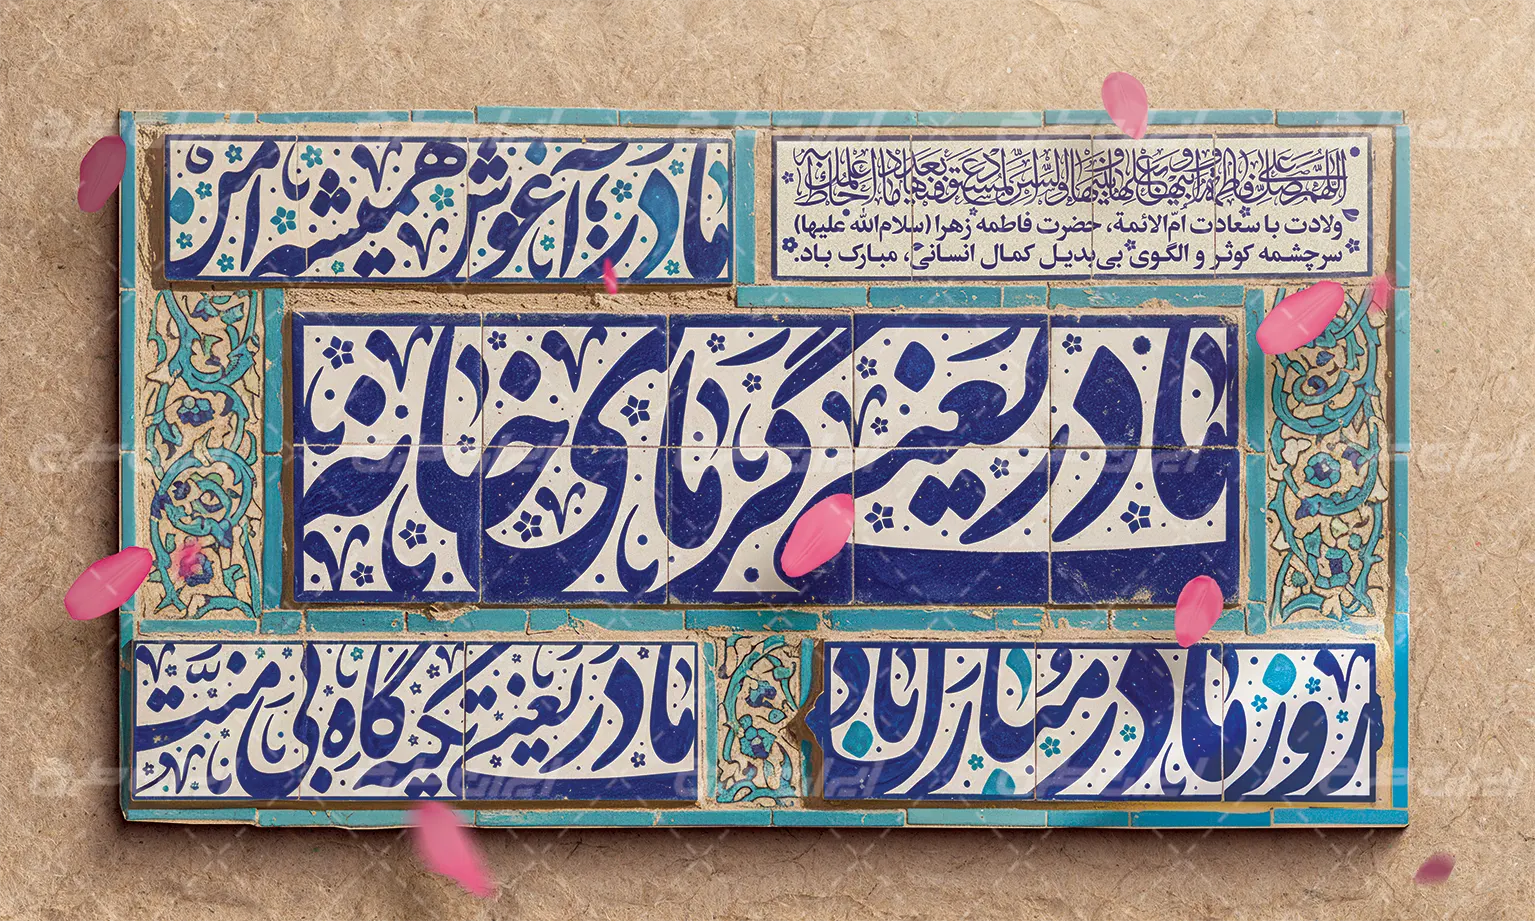 اللهم صل علی فاطمة و ابیها و بعلها و بنیها و السر المستودع فیها بعدد ما احاط به علمک
ولادت با سعادت اُمّ‌الائمة، حضرت فاطمه زهرا (سلام‌الله علیها)
سرچشمه کوثر و الگوی بی‌بدیل کمال انسانی، مبارک باد.
مادر؛ آغوش همیشه امن
مادر یعنی گرمای خانه
روز مادر مبارک باد
مادر یعنی تکیه‌گاهِ بی‌منّت